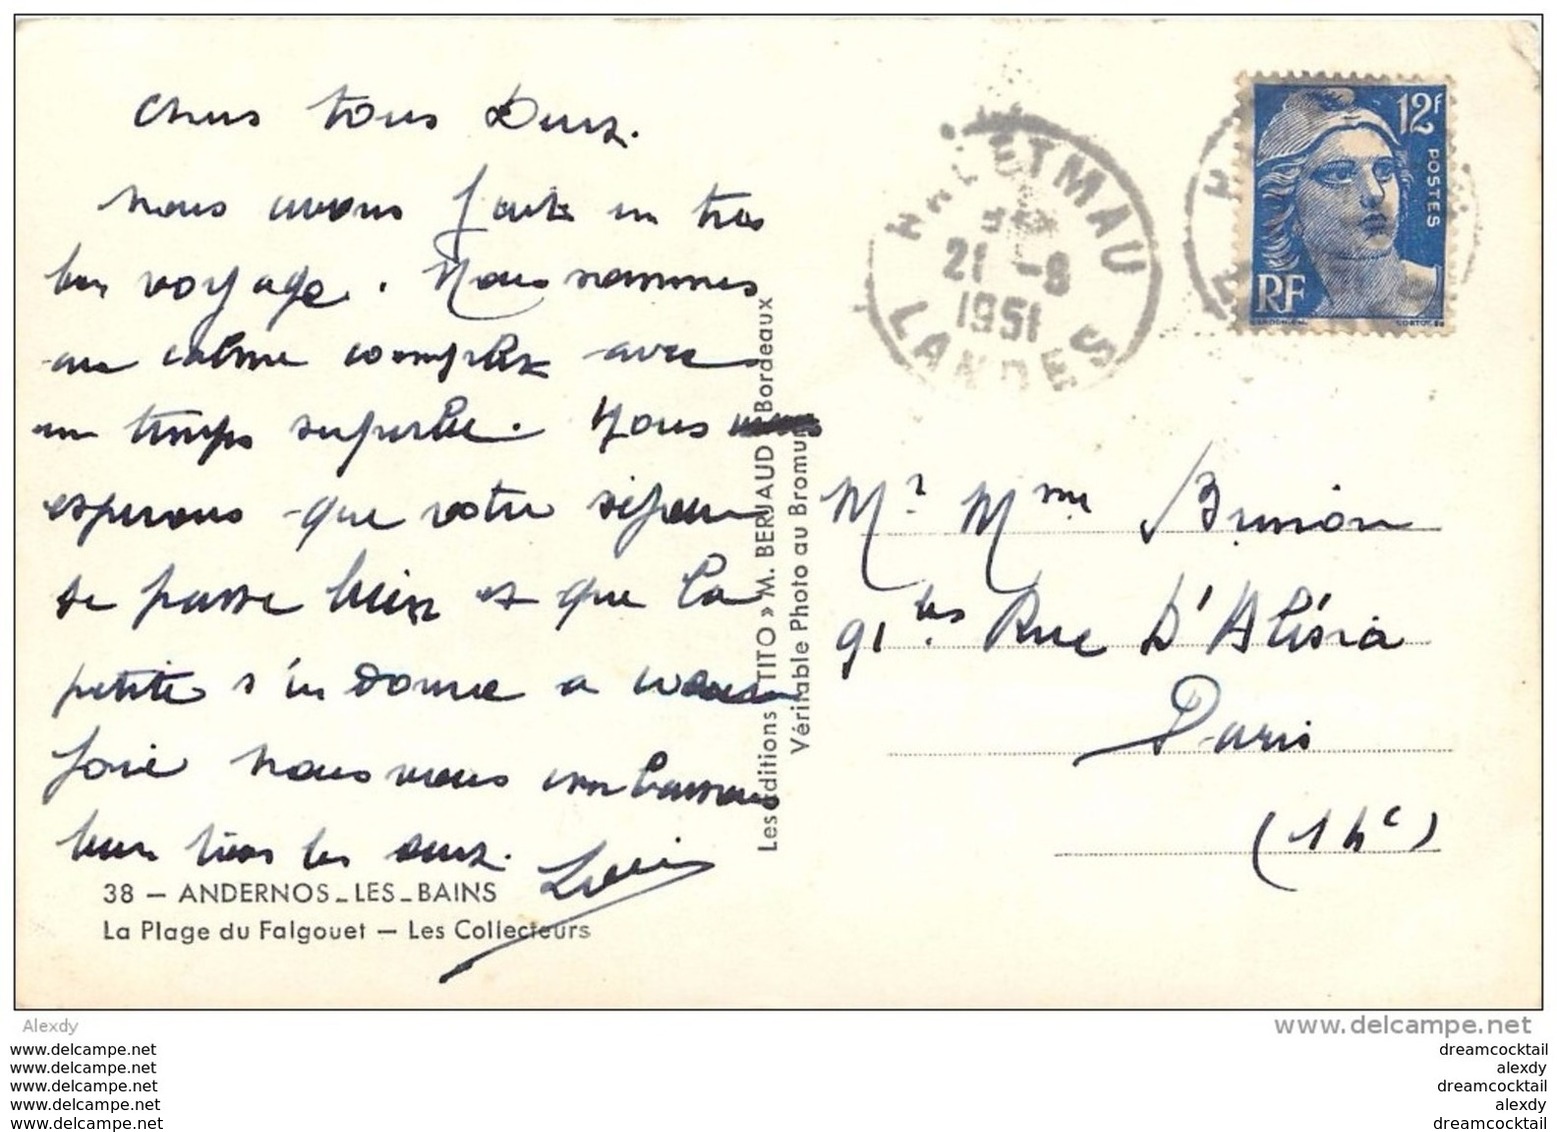 Chers tous Deux.
Nous avons fait un très
bon voyage. Nous sommes
au calme complet avec
un temps superbe. Nous
esperons que votre séjour
se passe bien et que la
petite s'en donne a coeur
joie Nous vous embrassons
bien tous les deux.
38 — ANDERNOS-LES-BAINS
La Plage du Falgouet — Les Collecteurs
Les Editions « TITO » M. BERJAUD Bordeaux
Véritable Photo au Bromure
HAGETMAU
21 -8
1951
LANDES
12F
POSTES
RF
Mr Mme Brunion
91 bis Rue D'Alésia
Paris
(14e)
Alexdy
www.delcampe.net
www.delcampe.net
www.delcampe.net
www.delcampe.net
www.delcampe.net
www.delcampe.net
dreamcocktail
alexdy
dreamcocktail
alexdy
dreamcocktail